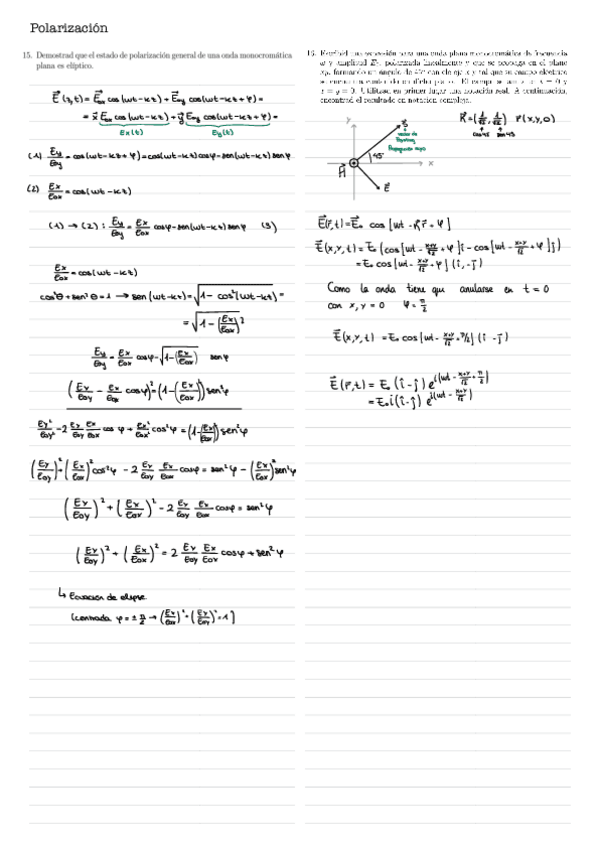 Polarización
15. Demostrad que el estado de polarización general de una onda monocromática
plana es elíptico.
E⃗(z,t) = E⃗ox cos(wt-kz) + E⃗oy cos(wt-kz+φ) =
= x⃗ Eox cos(wt-kz) + y⃗ Eoy cos(wt-kz+φ) =
Ex(t) Ey(t)
(1) Ey/Eoy = cos(wt-kz+φ) = cos(wt-kz) cosφ - sen(wt-kz) senφ
(2) Ex/Eox = cos(wt-kz)
(1) → (2) : Ey/Eoy = Ex/Eox cosφ - sen(wt-kz) senφ (3)
Ex/Eox = cos(wt-kz)
cos²θ + sen²θ = 1 → sen(wt-kz) = √(1 - cos²(wt-kz)) =
= √(1 - (Ex/Eox)²)
Ey/Eoy = Ex/Eox cosφ - √(1-(Ex/Eox)) senφ
(Ey/Eoy - Ex/Eox cosφ)² = (1-(Ex/Eox)) sen²φ
Ey²/Eoy² - 2 Ey/Eoy Ex/Eox cos φ + Ex²/Eox² cos²φ = (1-(Ex/Eox)) sen²φ
(Ey/Eoy)² + (Ex/Eox)² cos²φ - 2 Ey/Eoy Ex/Eox cosφ = sen²φ - (Ex/Eox)² sen²φ
(Ey/Eoy)² + (Ex/Eox)² - 2 Ey/Eoy Ex/Eox cosφ = sen²φ
(Ey/Eoy)² + (Ex/Eox)² = 2 Ey/Eoy Ex/Eox cosφ + sen²φ
↳ Ecuación de elipse
(centrada φ = ± π/2 → (Ex/Eox)² + (Ey/Eoy)² = 1)
16. Escribid una expresión para una onda plana monocromática de frecuencia
ω y amplitud E₀, polarizada linealmente y que se propaga en el plano
xy, formando un ángulo de 45° con el eje x y tal que su campo eléctrico
x = y = 0. Utilizad en primer lugar una notación real. A continuación,
encontrad el resultado en notación compleja.
K⃗ = (1/√2, 1/√2) r(x,y,0)
cos45 sen45
y
S⃗
vector de
Poynting
45°
x
H⃗
E⃗
E⃗(r,t) = E⃗o cos [wt - k⃗r⃗ + φ]
E⃗(x,y,t) = Eo (cos[wt - x+y/√2 + φ] î - cos[wt - x+y/√2 + φ] ĵ)
= Eo cos[wt - x+y/√2 + φ] (î, -ĵ)
Como la onda tiene que anularse en t = 0
con x,y = 0 φ = π/2
E⃗(x,y,t) = Eo cos[wt - x+y/√2 + π/2] (î -ĵ)
E⃗(r⃗,t) = Eo (î-ĵ) e^i(wt - x+y/√2 + π/2)
= Eo i(î-ĵ) e^i(wt - x+y/√2)